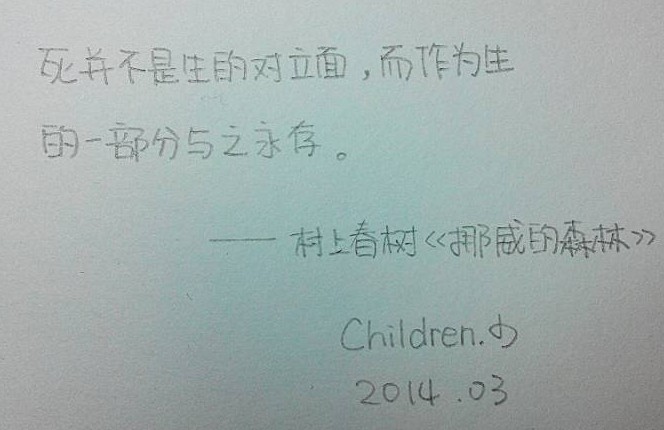 死并不是生的对立面，而作为生
的一部分与之永存。
—— 村上春树《挪威的森林》
Children.の
2014.03